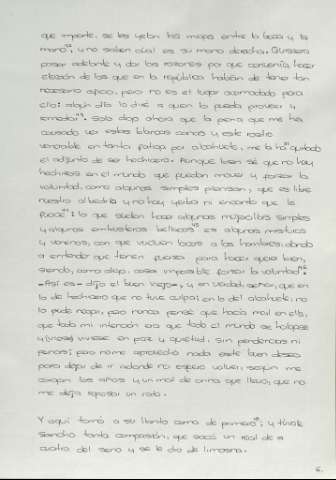 que importe, se les yelan las migas entre la boca y la
mano, y no saben cuál es su mano derecha. Quisiera
pasar adelante y dar las razones por que convenía hacer
elección de los que en la república habían de tener tan
necesario oficio, pero no es el lugar acomodado para
ello: algún día lo diré a quien lo pueda proveer y
remediar. Solo digo ahora que la pena que me ha
causado ver estas blancas canas y este rostro
venerable en tanta fatiga por alcahuete, me la ha quitado
el adjunto de ser hechicero. Aunque bien sé que no hay
hechizos en el mundo que puedan mover y forzar la
voluntad, como algunos simples piensan, que es libre
nuestro albedrío y no hay yerba ni encanto que le
fuerce: lo que suelen hacer algunas mujercillas simples
y algunos embusteros bellacos es algunas misturas
y venenos, con que vuelven locos a los hombres, dando
a entender que tienen fuerza para hacer querer bien,
siendo, como digo, cosa imposible forzar la voluntad.
-Así es- dijo el buen viejo-, y en verdad, señor, que en
lo de hechicero que no tuve culpa; en lo del alcahuete, no
lo pude negar, pero nunca pensé que hacía mal en ello,
que toda mi intención era que todo el mundo se holgase
y viviese en paz y quietud, sin pendencias ni
penas; pero no me aprovechó nada este buen deseo
para dejar de ir adonde no espero volver, según me
cargan los años y un mal de orina que llevo, que no
me deja reposar un rato.
Y aquí tornó a su llanto como de primero; y túvole
Sancho tanta compasión, que sacó un real de a
cuatro del seno y se le dio de limosna.
6.